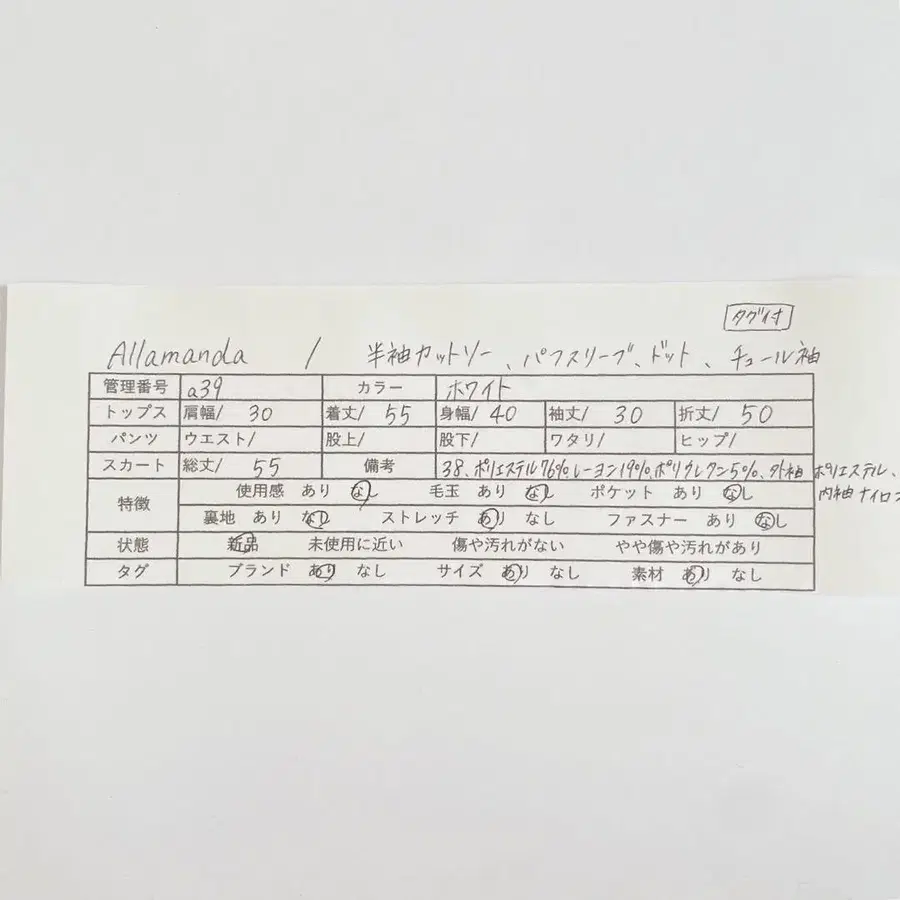 タグ付
Allamanda / 半袖カットソー、パフスリーブ、ドット、チュール袖
管理番号 a39 カラー ホワイト
トップス 肩幅/ 30 着丈/ 55 身幅/ 40 袖丈/ 30 折丈/ 50
パンツ ウエスト/ 股上/ 股下/ ワタリ/ ヒップ/
スカート 総丈/ 55 備考 38、ポリエステル76%、レーヨン19%、ポリウレタン5%、外袖 ポリエステル、
内袖ナイロン
特徴 使用感 あり なし 毛玉 あり なし ポケット あり なし
裏地 あり なし ストレッチ あり なし ファスナー あり なし
状態 新品 未使用に近い 傷や汚れがない やや傷や汚れがあり
タグ ブランド あり なし サイズ あり なし 素材 あり なし